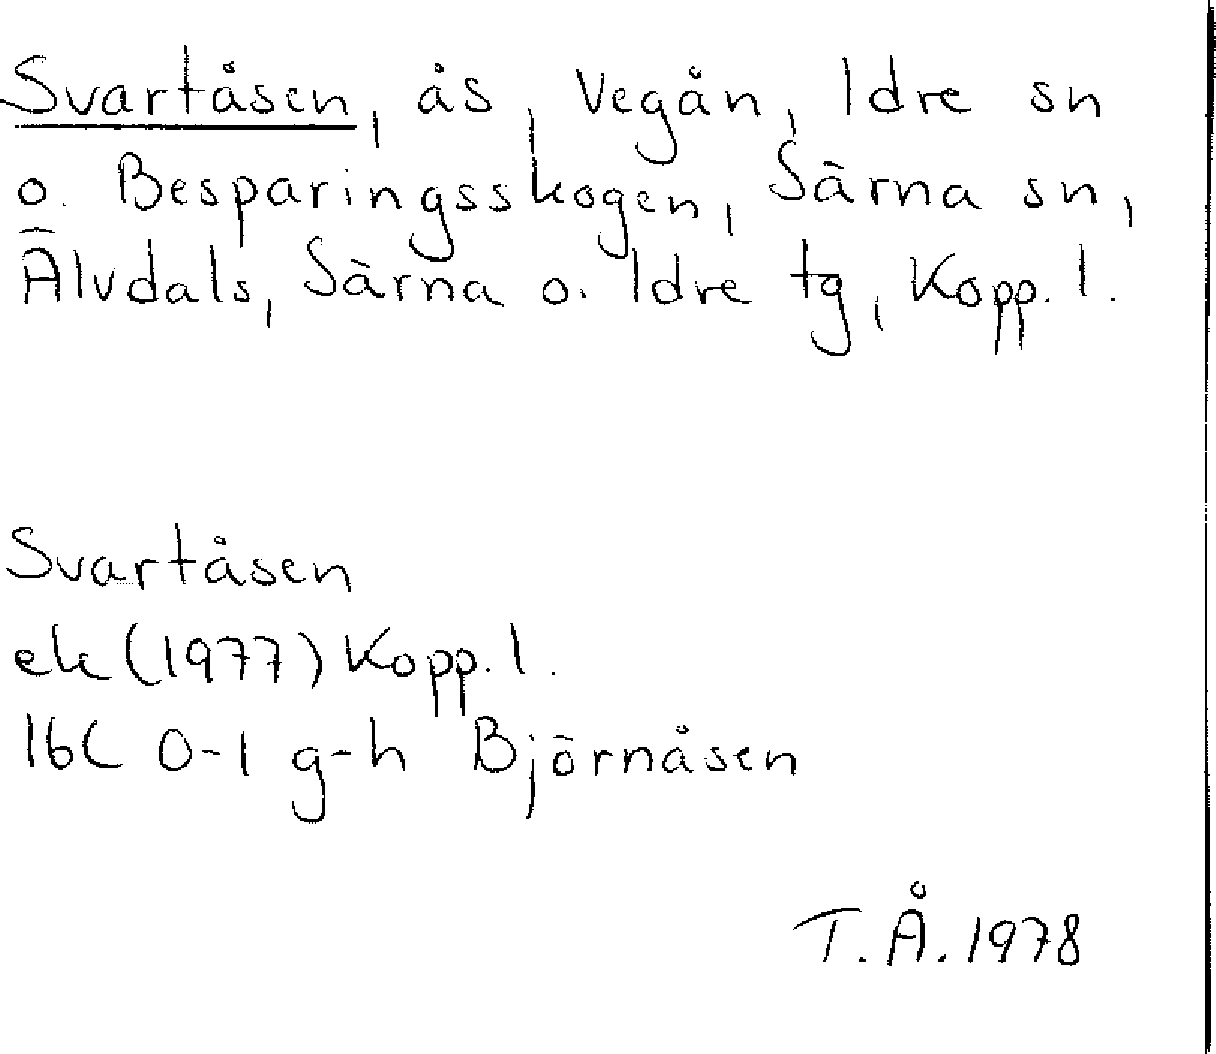 Svartåsen, ås, Vegån, Idre sn
o. Besparingsskogen, Särna sn,
Älvdals, Särna o. Idre tg, Kopp. l.
Svartåsen
ek (1977) Kopp. l.
16C 0-1 g-h Björnåsen
T.Å. 1978